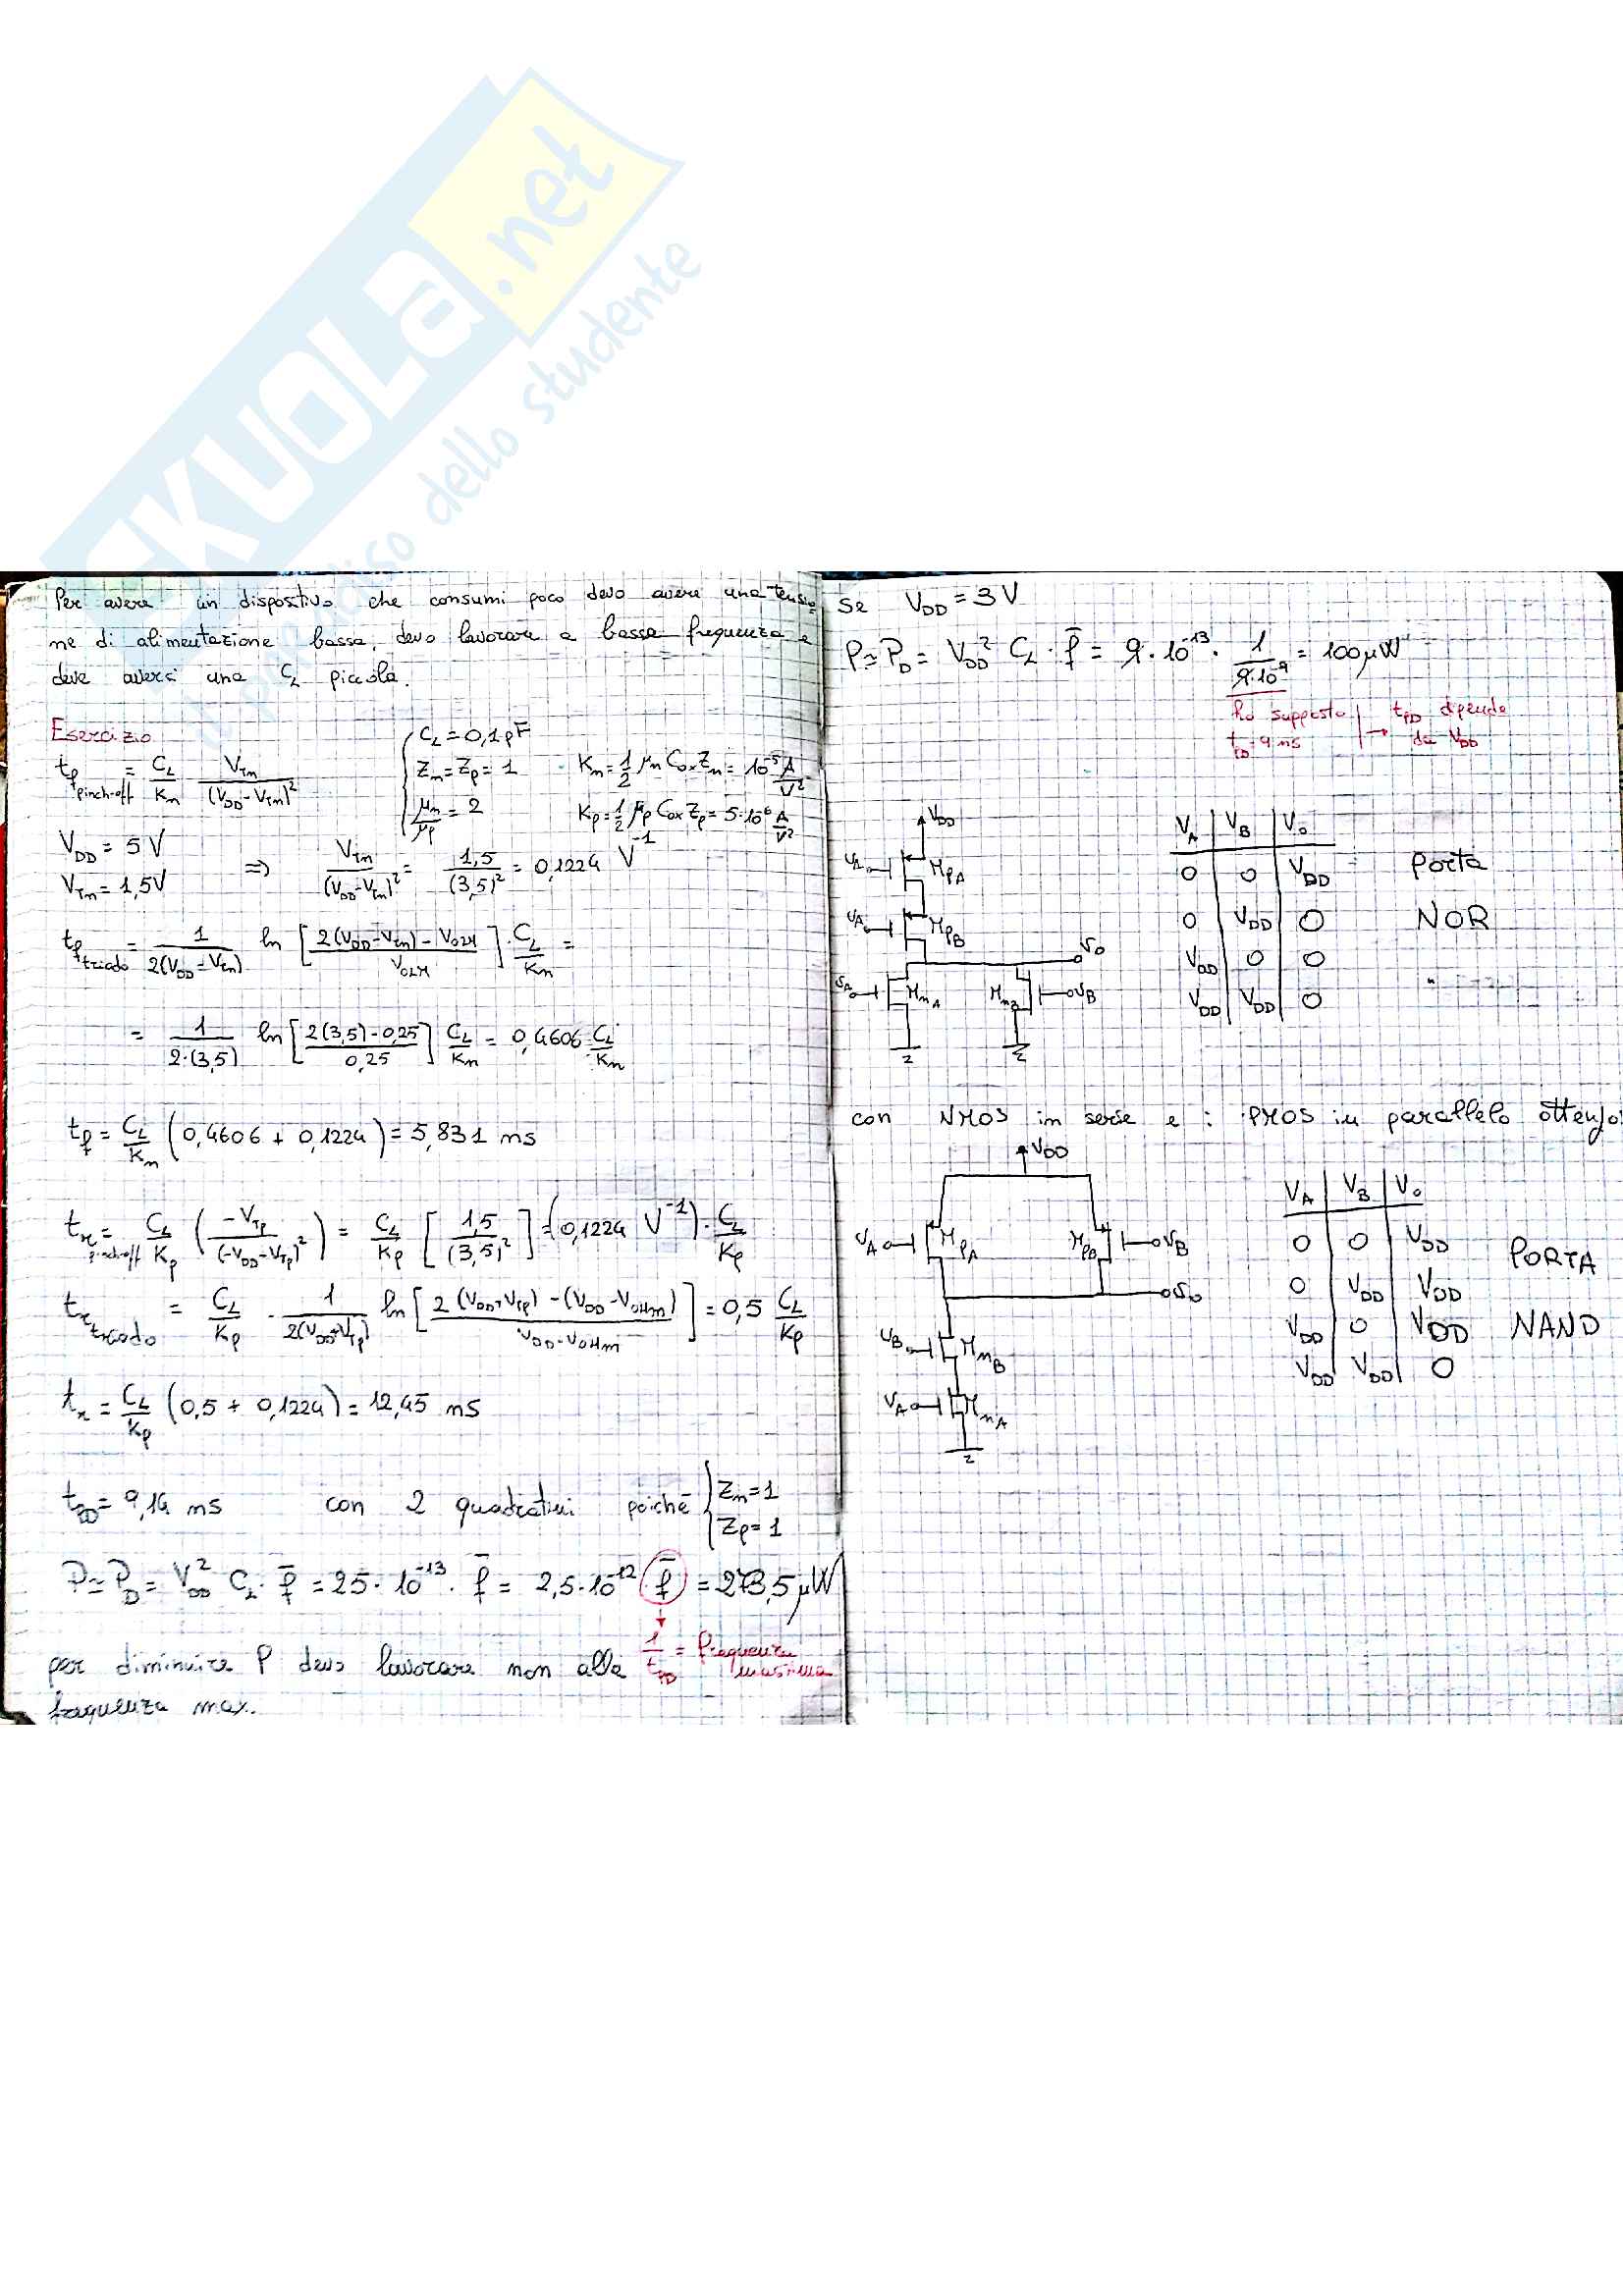 SKUOLA.net
dello studente
Per avere un dispositivo che consumi poco devo avere una tensio
ne di alimentazione bassa, devo lavorare a bassa frequenza e
deve averci una C_L piccola.
Esercizio
t_f pinch-off = C_L/K_n V_Tn/(V_DD-V_Tn)^2
{ C_L = 0,1 pF
Z_n = Z_p = 1
μ_n/μ_p = 2
K_n = 1/2 μ_n C_ox Z_n = 10^-5 A/V^2
K_p = 1/2 μ_p C_ox Z_p = 5·10^-6 A/V^2
V_DD = 5 V
V_Tn = 1,5V
⇒ V_Tn/(V_DD-V_Tn)^2 = 1,5/(3,5)^2 = 0,1224 V^-1
t_f triodo = 1/2(V_DD-V_Tn) ln [2(V_DD-V_Tn)-V_OLM/V_OLM] · C_L/K_n =
= 1/2·(3,5) ln [2(3,5)-0,25/0,25] C_L/K_n = 0,4606 C_L/K_n
t_f = C_L/K_n (0,4606 + 0,1224) = 5,831 ns
t_r pinch-off = C_L/K_p (-V_Tp/(-V_DD-V_Tp)^2) = C_L/K_p [1,5/(3,5)^2] = (0,1224 V^-1) · C_L/K_p
t_r triodo = C_L/K_p · 1/2(V_DD+V_Tp) ln [2(V_DD+V_Tp)-(V_DD-V_OHm)/V_DD-V_OHm] = 0,5 C_L/K_p
t_r = C_L/K_p (0,5 + 0,1224) = 12,45 ns
t_PD = 9,14 ns con 2 quadratini poiché { Z_n = 1
Z_p = 1
P ≃ P_D = V_DD^2 C_L · f̄ = 25 · 10^-13 · f̄ = 2,5·10^-12 · f̄ = 273,5 μW
1/t_PD = frequenza massima
per diminuire P devo lavorare non alla
frequenza max.
Se V_DD = 3 V
P ≃ P_D = V_DD^2 C_L · f̄ = 9·10^-13 · 1/9·10^-9 = 100 μW
ho supposto
t_PD 9 ns
→ t_PD dipende
da V_DD
V_DD
V_A M_pA
V_A M_pB
V_o
V_A M_nA M_nB V_B
V_A | V_B | V_o
0 | 0 | V_DD
0 | V_DD | 0
V_DD | 0 | 0
V_DD | V_DD | 0
Porta
NOR
con NMOS in serie e i PMOS in parallelo ottengo
V_DD
V_A M_pA M_pB V_B
V_o
V_B M_nB
V_A M_nA
V_A | V_B | V_o
0 | 0 | V_DD
0 | V_DD | V_DD
V_DD | 0 | V_DD
V_DD | V_DD | 0
PORTA
NAND